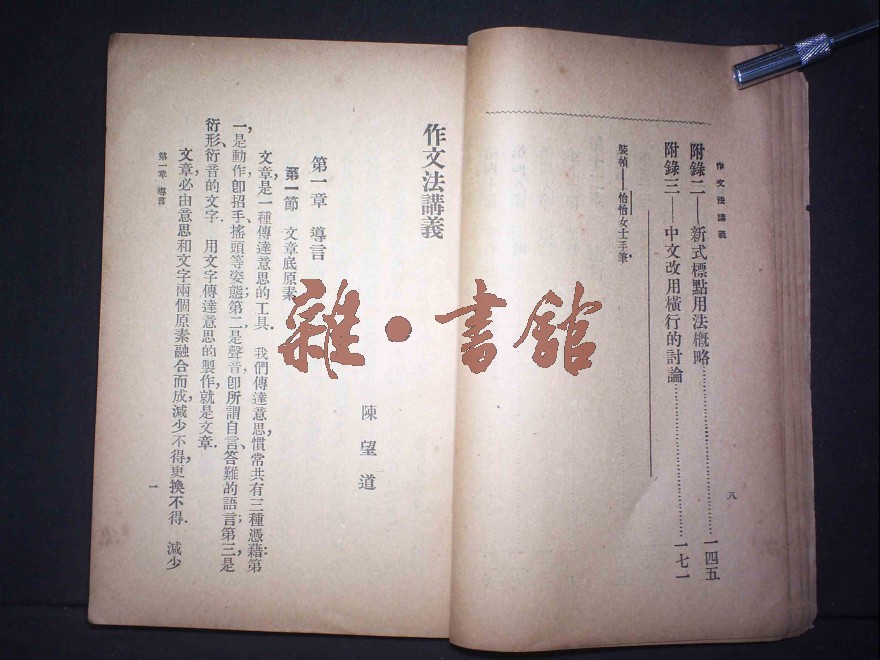 作文法講義
附錄二——新式標點用法概略……一四五
附錄三——中文改用橫行的討論……一七一
裝幀——怡怡女士手筆.
八
作文法講義
陳望道
第一章 導言
第一節 文章底原素
文章,是一種傳達意思的工具. 我們傳達意思,慣常共有三種憑藉:第
一,是動作,卽招手、搖頭等姿態;第二,是聲音,卽所謂自言、答難的語言;第三,是
衍形、衍音的文字. 用文字傳達意思的製作,就是文章.
文章,必由意思和文字兩個原素融合而成,減少不得,更換不得. 減少
第一章 導言
一
雜•書館